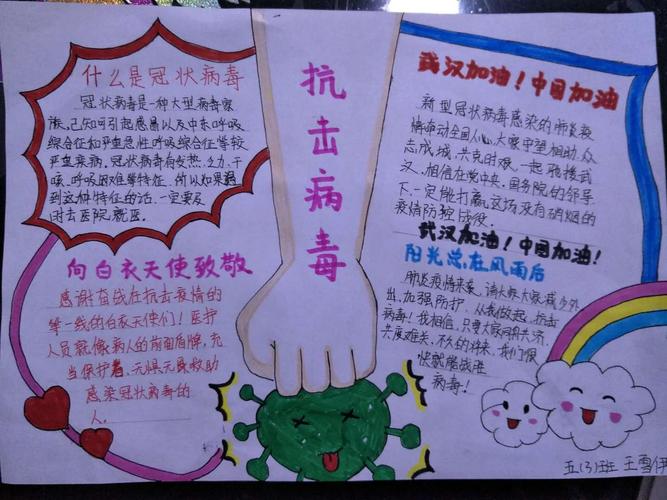 什么是冠状病毒
冠状病毒是一种大型病毒家
族,已知可引起感冒以及中东呼吸
综合征和严重急性呼吸综合征等较
严重疾病。冠状病毒有发热、乏力、干
咳、呼吸困难等特征。所以如果遇
到这种特征的话,一定要及
时去医院就医。
向白衣天使致敬
感谢奋战在抗击疫情的
第一线的白衣天使们!医护
人员就像病人的前面盾牌,充
当保护者,无惧无畏救助
感染冠状病毒的
人。
抗击病毒
武汉加油!中国加油
新型冠状病毒感染的肺炎疫
情牵动全国人心,大家守望相助,众
志成城,共克时艰,一起驰援武
汉,相信在党中央、国务院的领导
下,一定能打赢这场没有硝烟的
疫情防控战役。
武汉加油!中国加油!
阳光总在风雨后
肺炎疫情来袭,请大家大家减少外
出,加强防护,从我做起,抗击
病毒!我相信,只要大家同舟共济,
共度难关,不久的将来,我们很
快就能战胜
病毒!
五(3)班 王雪伊